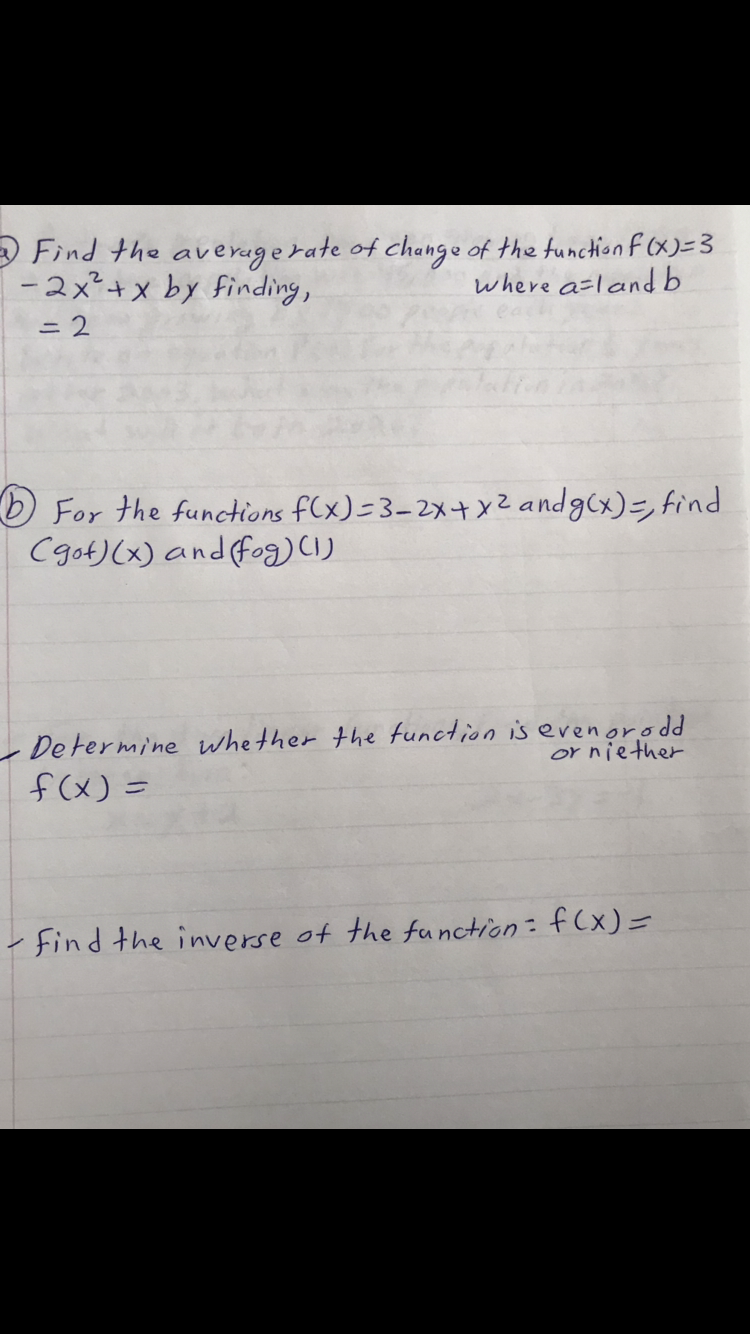 a) Find the average rate of change of the function f(x)=3
-2x²+x by finding, where a=1 and b
=2
b) For the functions f(x)=3-2x+x² and g(x)=, find
(gof)(x) and (fog)(1)
- Determine whether the function is even or odd
or niether
f(x)=
- Find the inverse of the function: f(x)=